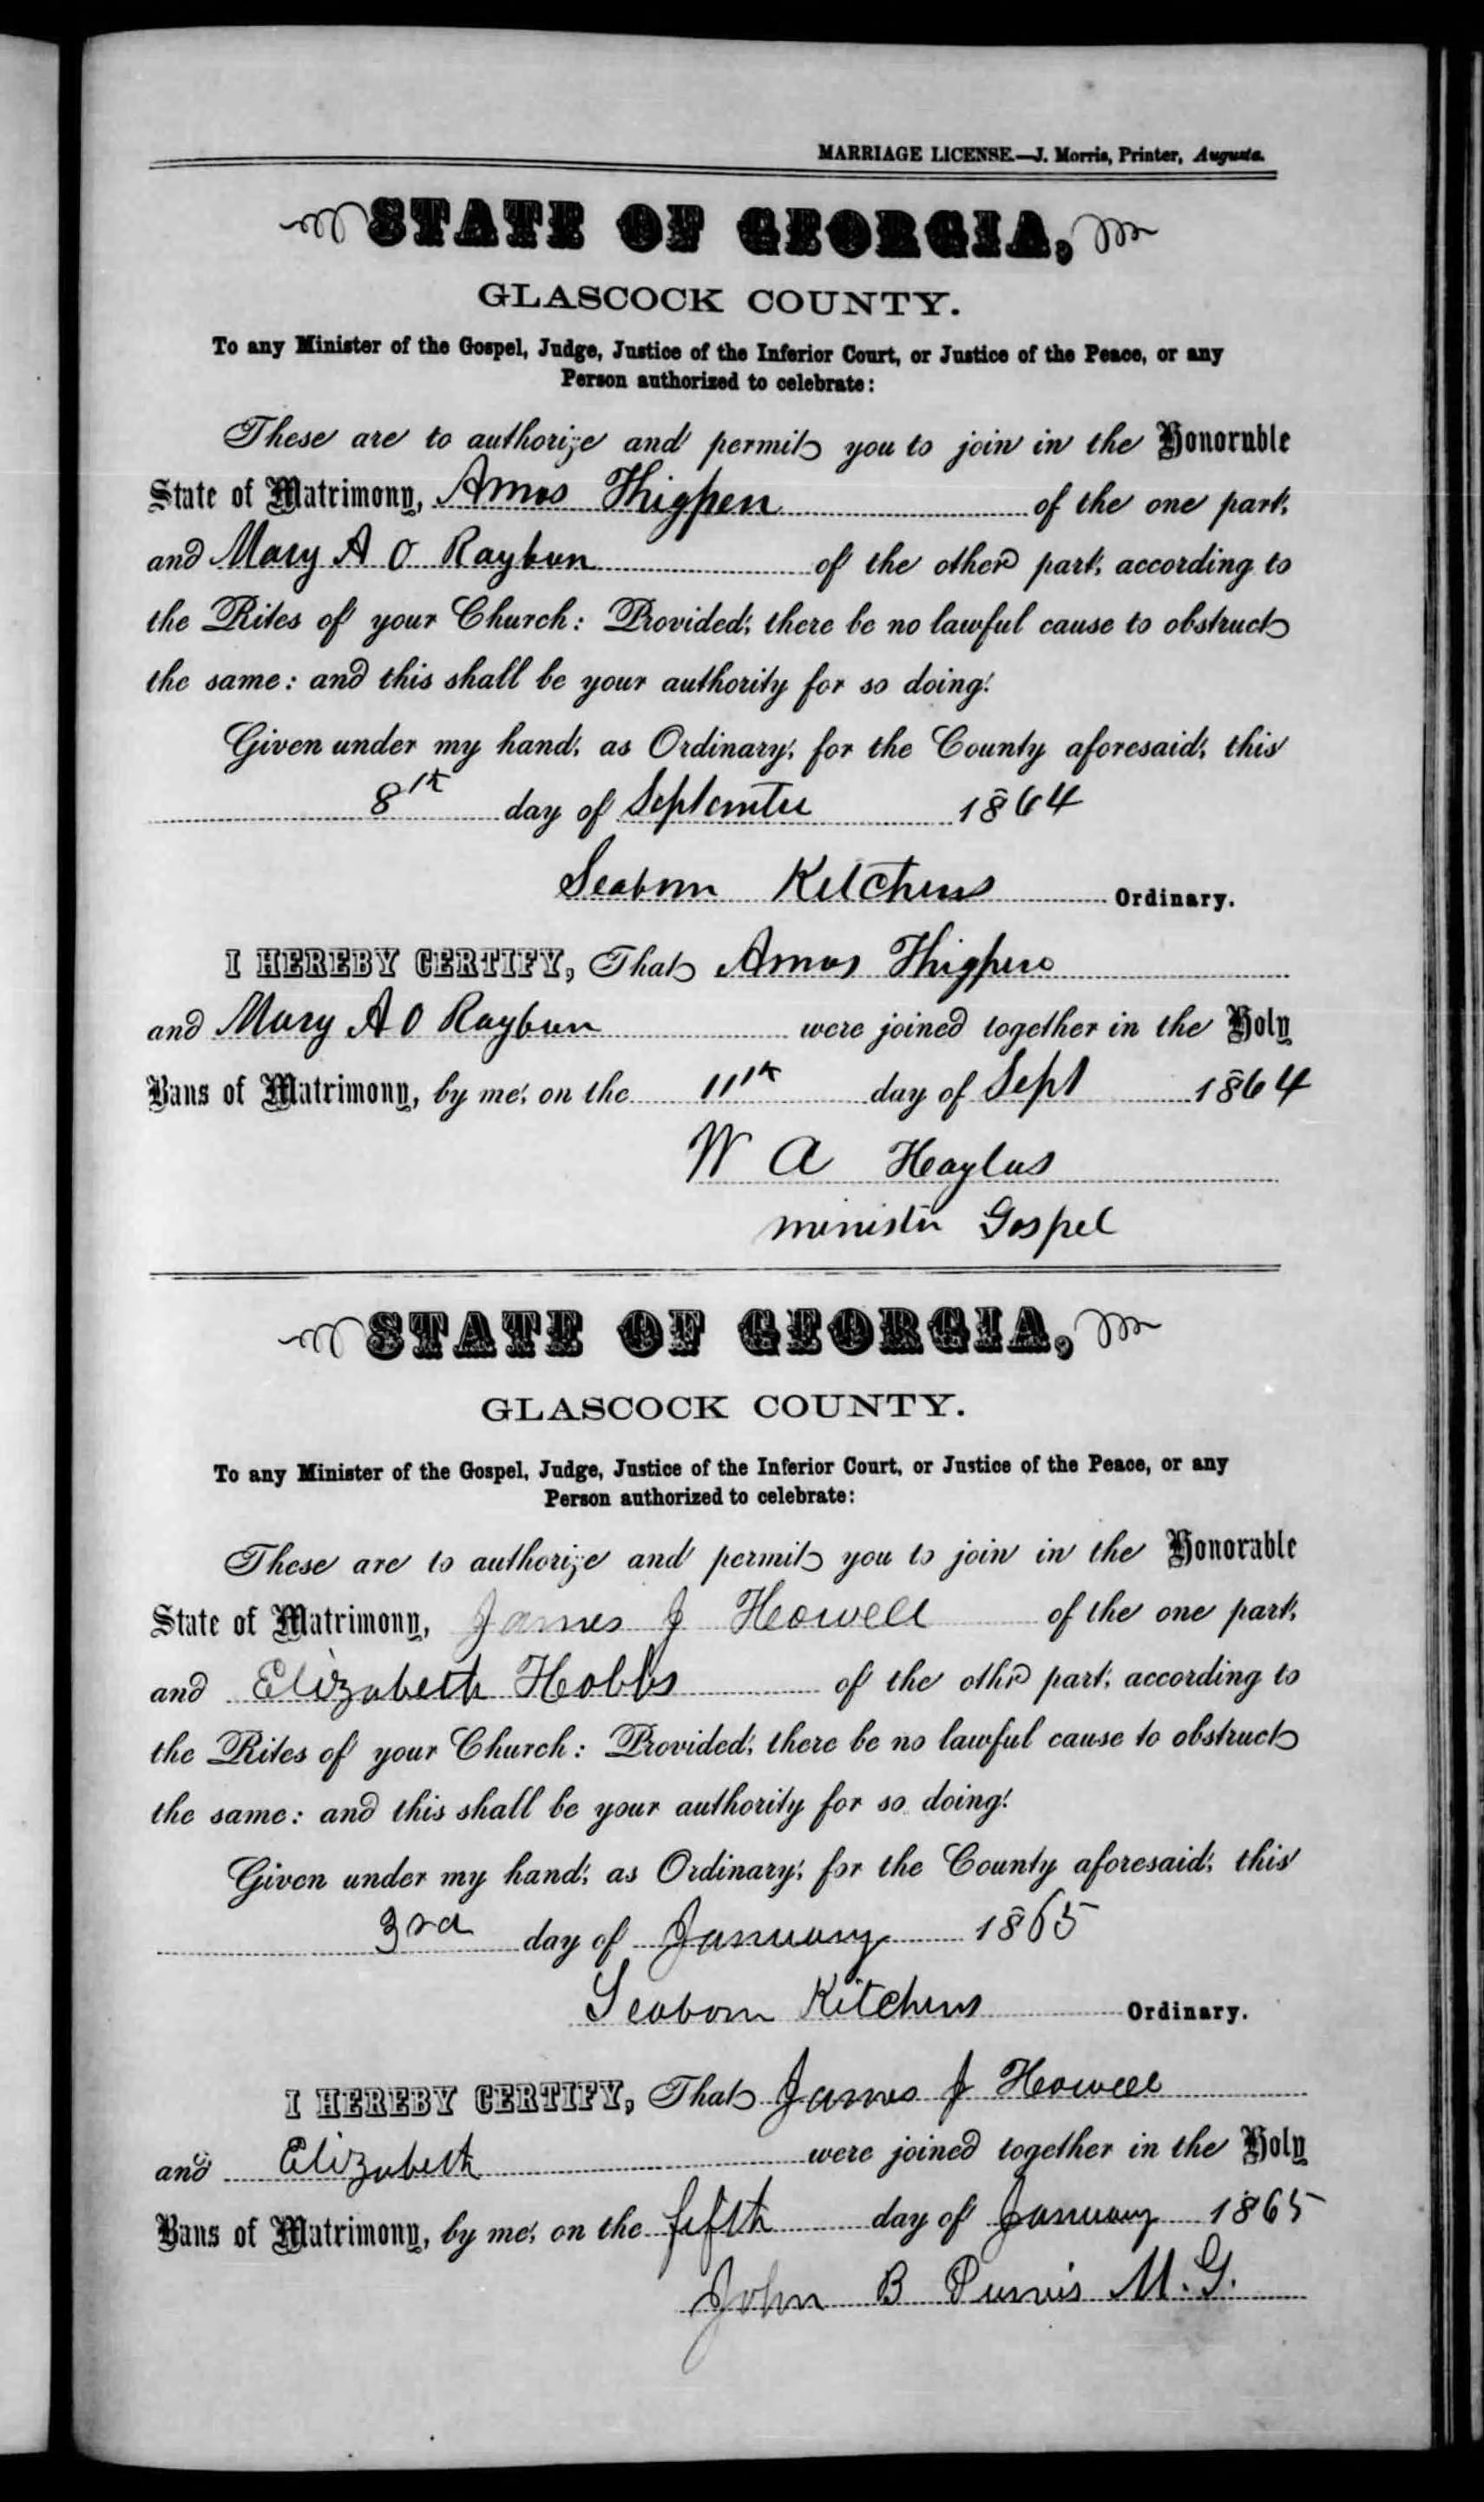 MARRIAGE LICENSE.—J. Morris, Printer, Augusta.
STATE OF GEORGIA,
GLASCOCK COUNTY.
To any Minister of the Gospel, Judge, Justice of the Inferior Court, or Justice of the Peace, or any
Person authorized to celebrate:
These are to authorize and permit you to join in the Honorable
State of Matrimony, Amos Thigpen of the one part,
and Mary A O Raybun of the other part, according to
the Rites of your Church: Provided, there be no lawful cause to obstruct
the same: and this shall be your authority for so doing.
Given under my hand, as Ordinary, for the County aforesaid, this
8th day of September 1864
Seaborn Kitchens Ordinary.
I HEREBY CERTIFY, That Amos Thigpen
and Mary A O Raybun were joined together in the Holy
Bans of Matrimony, by me, on the 11th day of Sept 1864
W A
minister Gospel
STATE OF GEORGIA,
GLASCOCK COUNTY.
To any Minister of the Gospel, Judge, Justice of the Inferior Court, or Justice of the Peace, or any
Person authorized to celebrate:
These are to authorize and permit you to join in the Honorable
State of Matrimony, James J Howell of the one part,
and Elizabeth Hobbs of the othr part, according to
the Rites of your Church: Provided, there be no lawful cause to obstruct
the same: and this shall be your authority for so doing.
Given under my hand, as Ordinary, for the County aforesaid, this
3rd day of January 1865
Seaborn Kitchens Ordinary.
I HEREBY CERTIFY, That James J Howell
and Elizabeth were joined together in the Holy
Bans of Matrimony, by me, on the fifth day of January 1865
John B Purvis M.G.